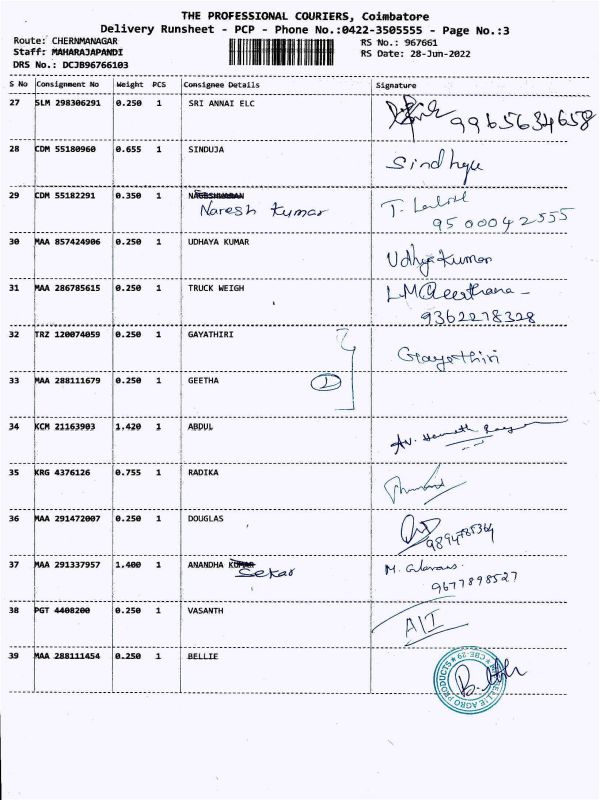 THE PROFESSIONAL COURIERS, Coimbatore
Delivery Runsheet - PCP - Phone No.:0422-3505555 - Page No.:3
Route: CHERNMANAGAR RS No.: 967661
Staff: MAHARAJAPANDI RS Date: 28-Jun-2022
DRS No.: DCJB96766103
S No Consignment No Weight PCS Consignee Details Signature
27 SLM 298306291 0.250 1 SRI ANNAI ELC 9965634658
28 CDM 55180960 0.655 1 SINDUJA Sindhya
29 CDM 55182291 0.350 1 NAGESHWARAN T.
Naresh Kumar 9500042555
30 MAA 857424906 0.250 1 UDHAYA KUMAR Udhyakumar
31 MAA 286785615 0.250 1 TRUCK WEIGH
9362278328
32 TRZ 120074059 0.250 1 GAYATHIRI Gayathiri
33 MAA 288111679 0.250 1 GEETHA 2
34 KCM 21163903 1.420 1 ABDUL
35 KRG 4376126 0.755 1 RADIKA
36 MAA 291472007 0.250 1 DOUGLAS 9894785364
37 MAA 291337957 1.400 1 ANANDHA KUMAR M.
Sekar 9677898527
38 PGT 4408200 0.250 1 VASANTH A/I
39 MAA 288111454 0.250 1 BELLIE
AGRO PRODUCTS ★ CBE-29 ★